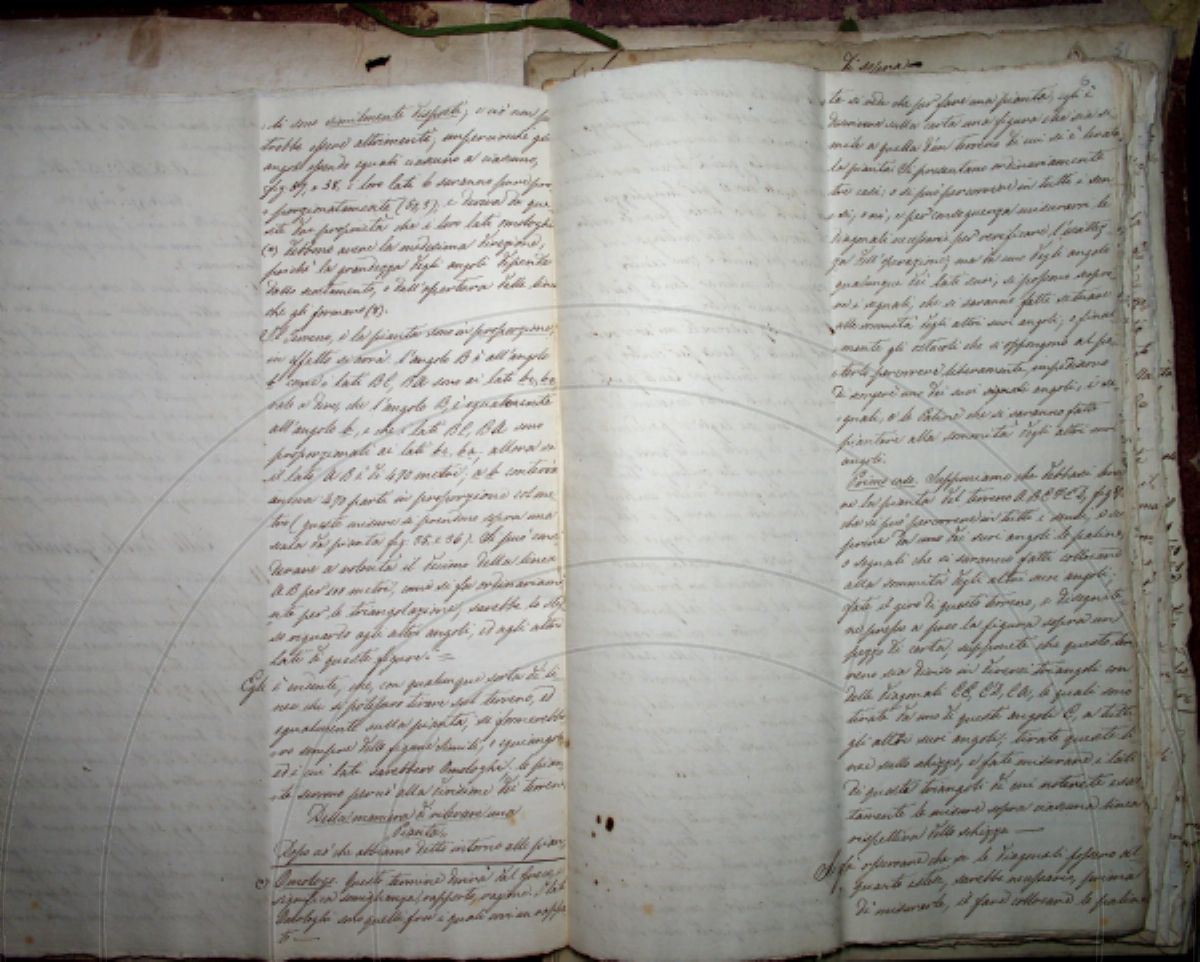 ti sono similmente disposti; e ciò non po
trebbe essere altrimenti, imperciocchè gli
angoli essendo eguali ciascuno a ciascuno,
fig. 37, e 38, i loro lati lo saranno pure pro
porzionatamente e deriva da que
sta proprietà che i loro lati omologhi
(*) debbono avere la medesima direzione,
poichè la grandezza degli angoli dipende
dallo scostamento, o dall'apertura delle linee
che gli formano (8).
Il Terreno, e la pianta sono in proporzione;
in effetto si avrà l'angolo B è all'angolo
b come i lati BC, BA sono ai lati bc, ba
vale a dire, che l'angolo B, è egualmente
all'angolo b, e che i lati BC, BA sono
proporzionali ai lati bc, ba. allora se
il lato AB è di 490 metri, a b conterrà
ancora 490 parti in proporzione col me
tro (queste misure si prendono sopra una
scala di pianta fig. 35, e 36). Si può consi
derare a volontà il decimo della linea
AB per 100 metri, come si fa ordinariame
nte per le triangolazione, sarebbe lo stes
so riguardo agli altri angoli, ed agli altri
lati di queste figure. =
Egli è evidente, che, con qualunque sorta di li
nee che si potessero tirare sul terreno, ed
egualmente sulla pianta, si formerebbe
ro sempre delle figure simili, e equiangole
ed i cui lati sarebbero Omologhi. le pian
te servono perciò alla divisione dei terreni
Della maniera di rilevare una
Pianta.
Dopo ciò che abbiamo detto intorno alle pian
(*) Omologo. Questo termine deriva dal Greco,
significa somiglianza, rapporto, ragione. I lati
Omologhi sono quelli fra i quali evvi un rappo
to —
di sopra
6
te si vede che per fare una pianta, egli è
descrivere sulla carta una figura che sia si
mile a quella d'un terreno di cui si è levata
la pianta. Si presentano ordinariamente
tre casi; o si può percorrere in tutti i sen
si, o nò, e per conseguenza misurare le
diagonali necessarie per verificare l'esattez
za dell'operazione; ma da uno degli angoli
qualunque dei lati suoi, si possono scopri
re i segnali, che si saranno fatti situare
alle sommità degli altri suoi angoli; e final
mente gli ostacoli che si oppongono al po
terlo percorrere liberamente, impediscono
di scoprire uno dei suoi angoli, i se
gnali, o le Paline che si saranno fatte
piantare alla sommità degli altri suoi
angoli.
Primo caso. Supponiamo che debbasi leva
re la pianta del terreno
che si può percorrere in tutti i sensi, e sco
prire da uno dei suoi angoli le paline,
o segnali che si saranno fatti collocare
alla sommità degli altri suoi angoli;
fate il giro di questo terreno, e disegnate
ne presso a poco la figura sopra un
pezzo di carta, supponete che questo ter
reno sia diviso in diversi triangoli con
delle diagonali CE, CF, CA, le quali sono
tirate da uno di questi angoli C, a tutti
gli altri suoi angoli; tirate queste li
nee sullo schizzo, e fate misurare i lati
di questi triangoli di cui noterete esat
tamente le misure sopra ciascuna linea
rispettiva dello schizzo —
Si fà osservare che se le diagonali fossero al
quanto estese, sarebbe necessario, prima
di misurarle, il farvi collocare le paline